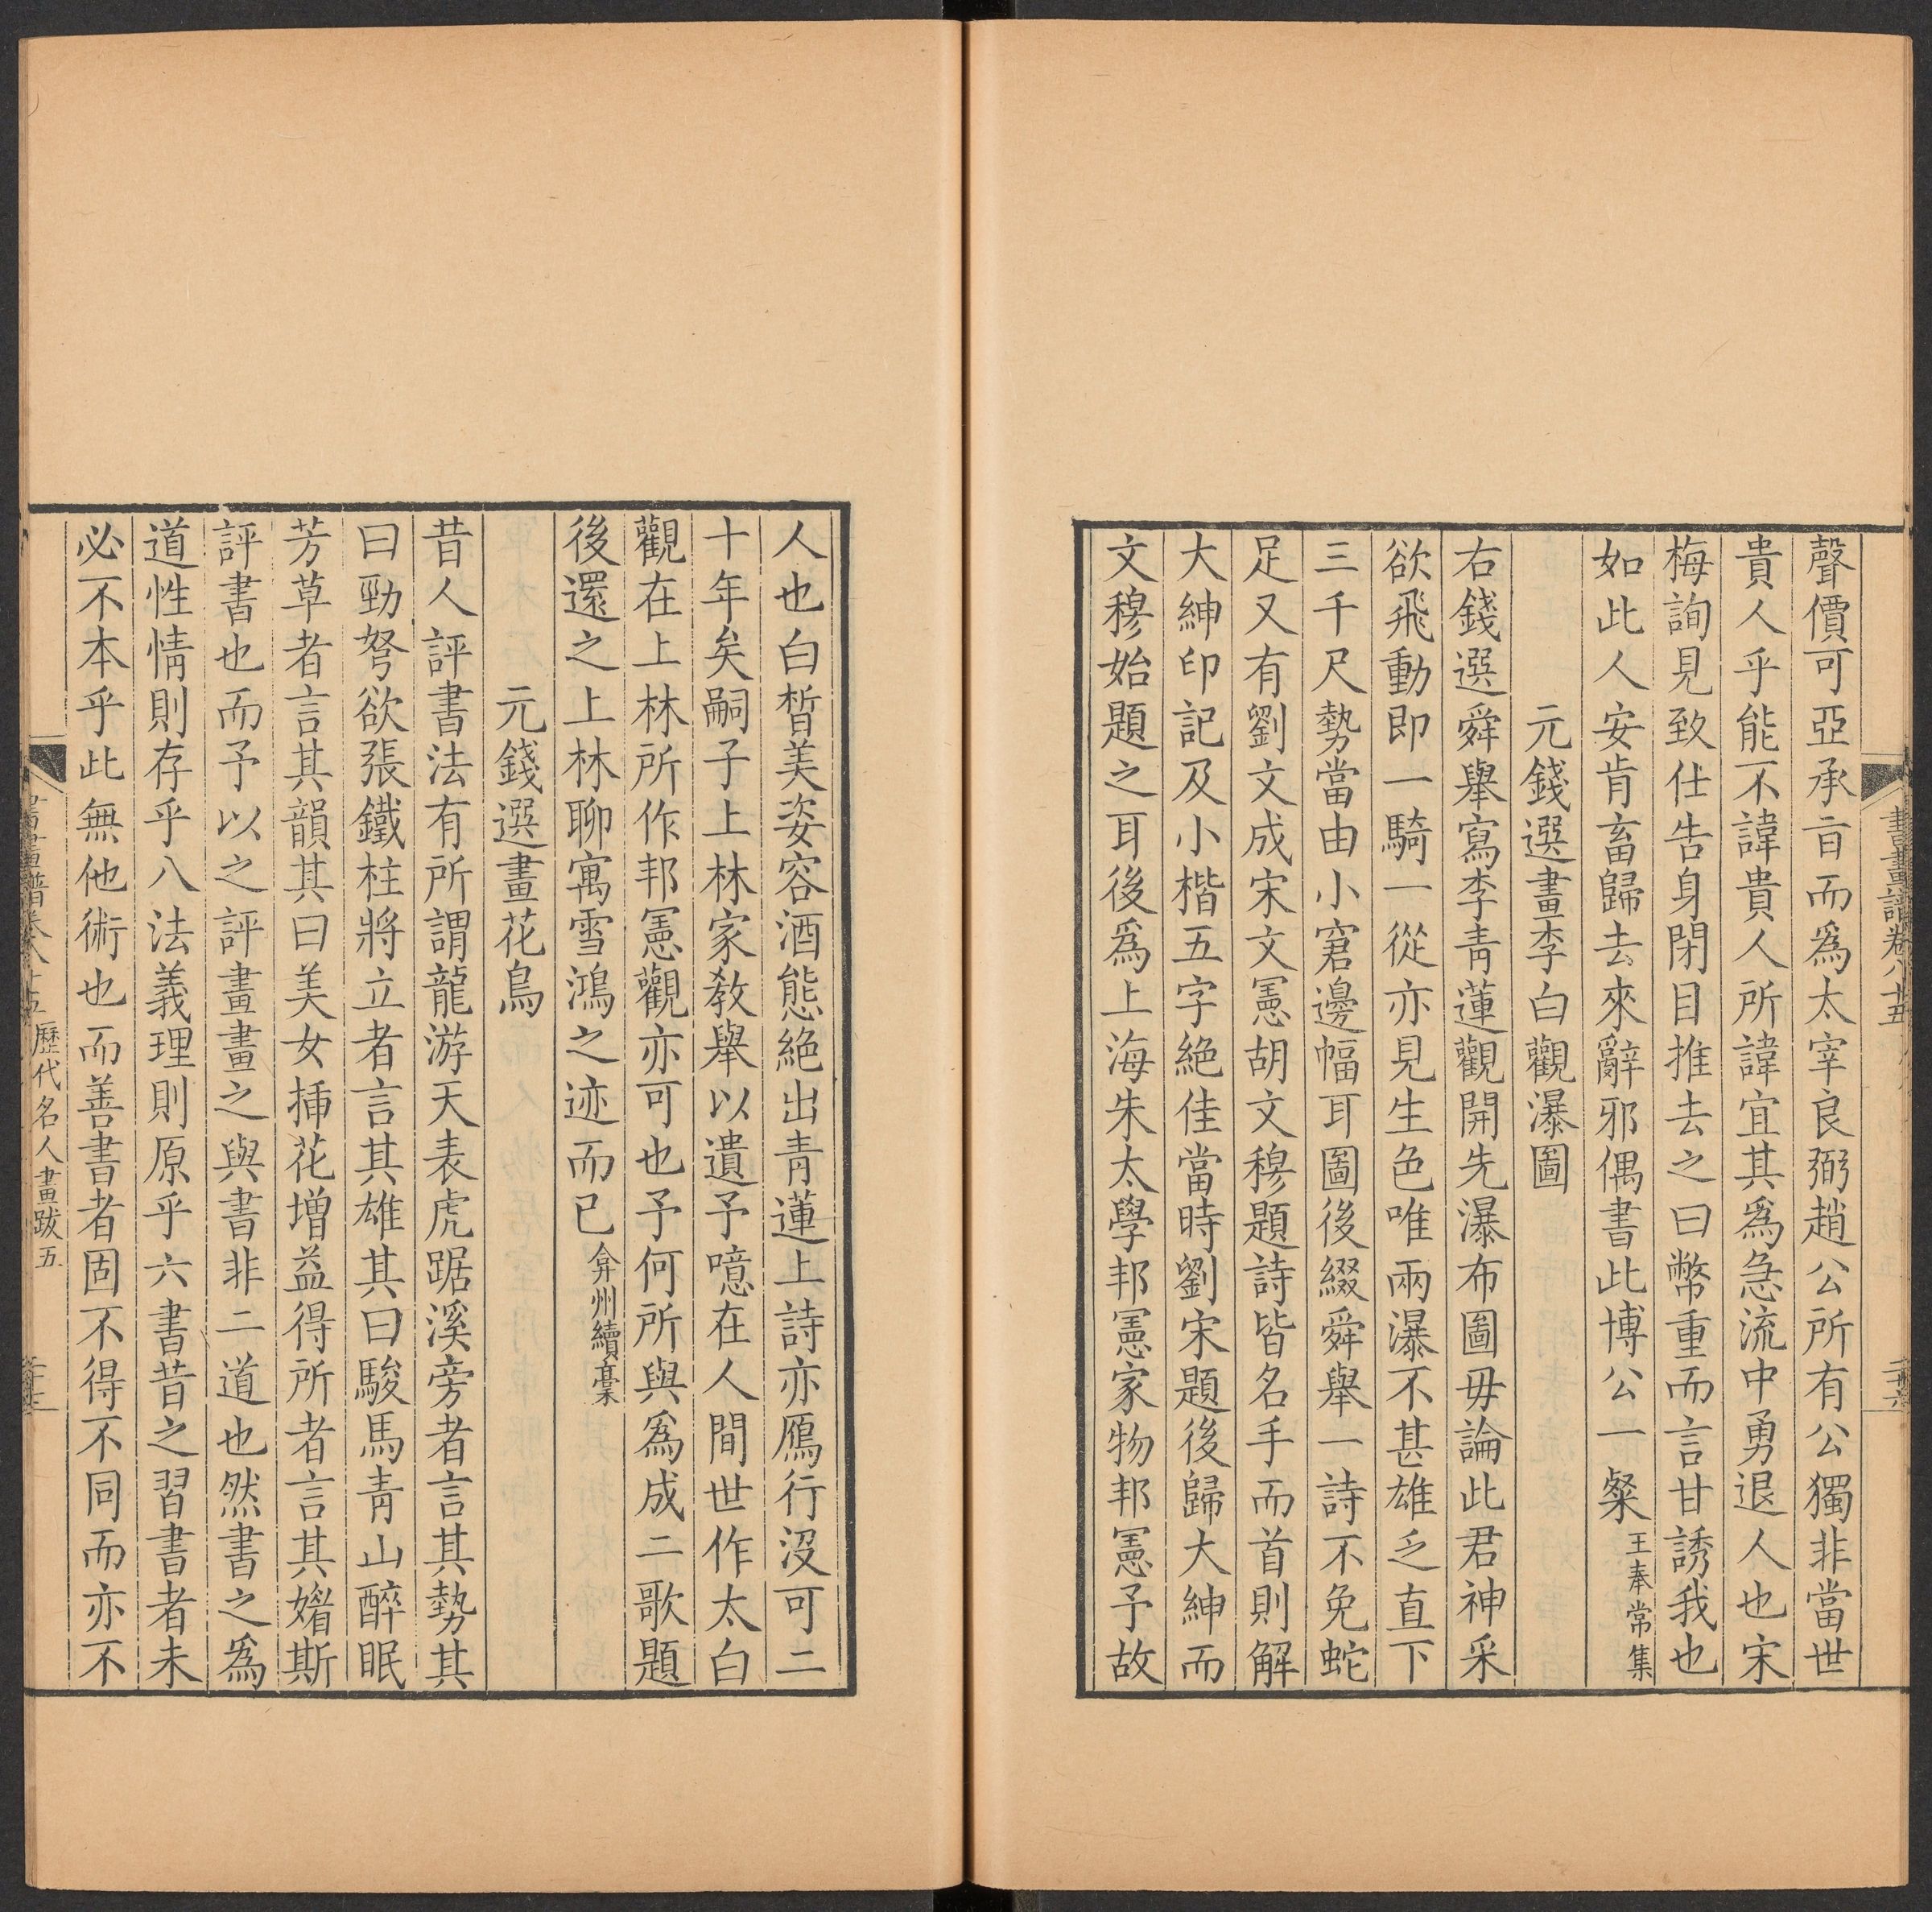 聲價可亞承旨而爲太宰良弼趙公所有公獨非當世
貴人乎能不諱貴人所諱宜其爲急流中勇退人也宋
梅詢見致仕告身閉目推去之曰幣重而言甘誘我也
如此人安肯畜歸去來辭邪偶書此博公一粲王奉常集
元錢選畫李白觀瀑圖
右錢選舜舉寫李青蓮觀開先瀑布圖毋論此君神采
欲飛動即一騎一從亦見生色唯兩瀑不甚雄乏直下
三千尺勢當由小窘邊幅耳圖後綴舜舉一詩不免蛇
足又有劉文成宋文憲胡文穆題詩皆名手而首則解
大紳印記及小楷五字絕佳當時劉宋題後歸大紳而
文穆始題之耳後爲上海朱太學邦憲家物邦憲予故
人也白皙美姿容酒態絕出青蓮上詩亦鴈行沒可二
十年矣嗣子上林家教舉以遺予噫在人間世作太白
觀在上林所作邦憲觀亦可也予何所與爲成二歌題
後還之上林聊寓雪鴻之迹而已弇州續稾
元錢選畫花鳥
昔人評書法有所謂龍游天表虎踞溪旁者言其勢其
曰勁弩欲張鐵柱將立者言其雄其曰駿馬青山醉眠
芳草者言其韻其曰美女揷花增益得所者言其媚斯
評書也而予以之評畫畫之與書非二道也然書之爲
道性情則存乎八法義理則原乎六書昔之習書者未
必不本乎此無他術也而善書者固不得不同而亦不
書畫譜卷八十五 歷代名人畫跋五